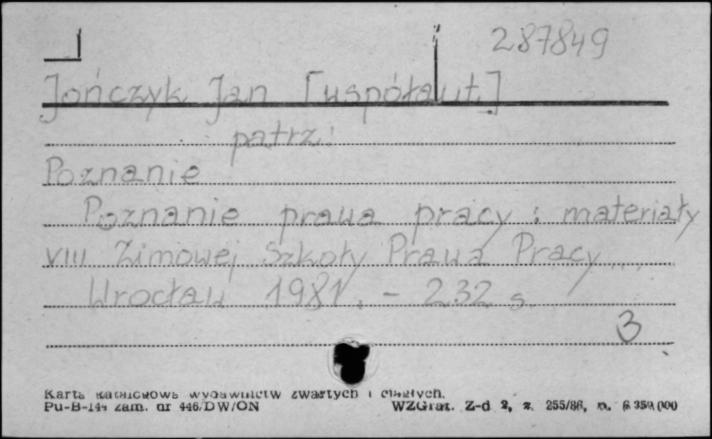 287849
Jończyk Jan [współaut.]
patrz:
Poznanie
Poznanie prawa pracy : materiały
VIII Zimowej Szkoły Prawa Pracy ...
Wrocław 1981. - 232 s.
3
Karta katalogowa wydawnictw zwartych i ciągłych.
Pu-B-144 zam. nr 446/DW/ON WZGraf. Z-d 2, z. 255/86, n.